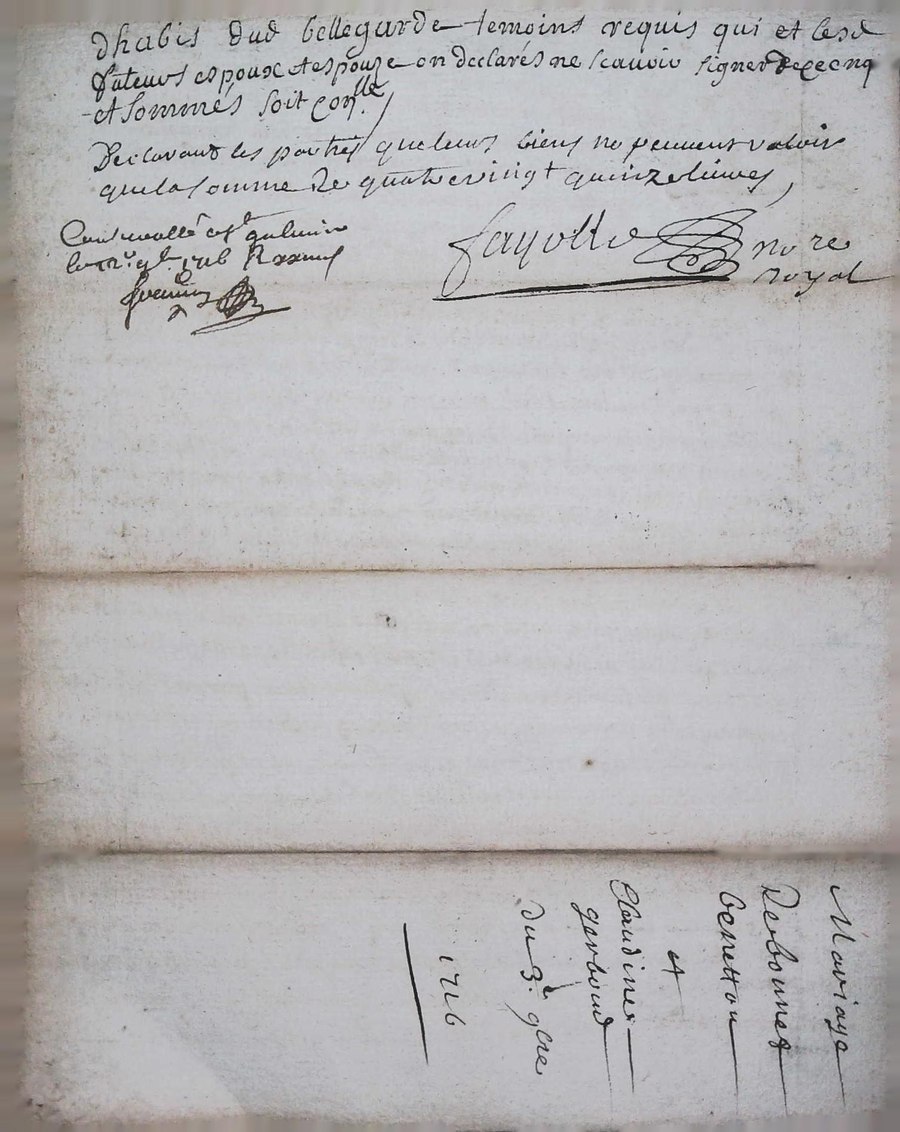 dhabis dud bellegarde temoins requis qui et lesd
futeurs espoux et espouze on declarés ne scauoir signer de ce enq
et sommés soit con.lle
Declarant les parties que leurs biens ne peuuent valoir
que la somme de quatre vingt quinze liures
Controollé
le 1716
fayolle no.re
royal
Mariage
De bonnet
benetton
et
Claudine
gerboud
du 3.e 9bre
1716